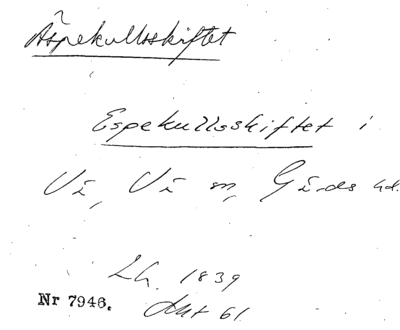 Äspekullsskiftet
Espekullsskiftet i
Vå, Vå sn, Gärds hd.
Lh. 1839
Nr 7946. Akt 61